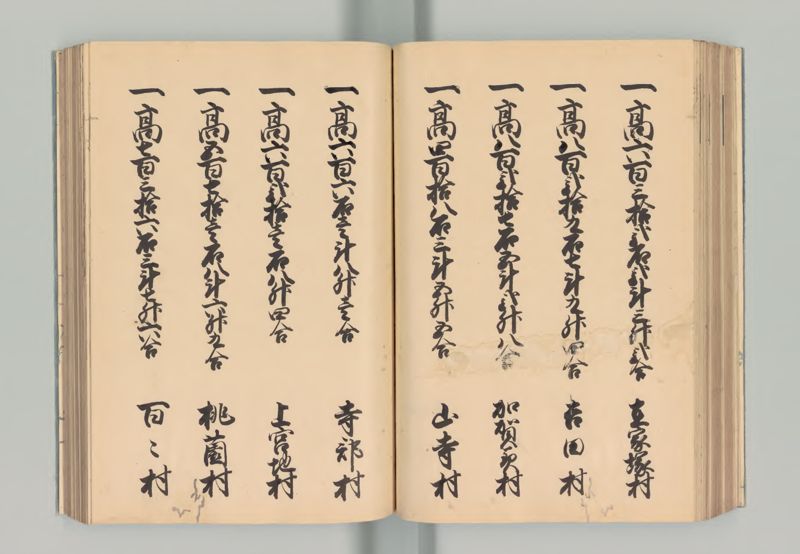 一高六百三拾弐石弐斗三升弐合 在家塚村
一高八百弐拾九石七斗九升四合 吉田村
一高八百弐拾七石五斗弐升八合 加賀美村
一高四百拾八石三斗五升五合 山寺村
一高六百六石壱斗八升壱合 寺部村
一高六百弐拾壱石八升四合 上宮地村
一高五百七拾壱石八斗六升九合 桃園村
一高七百三拾六石三斗七升六合 百々村